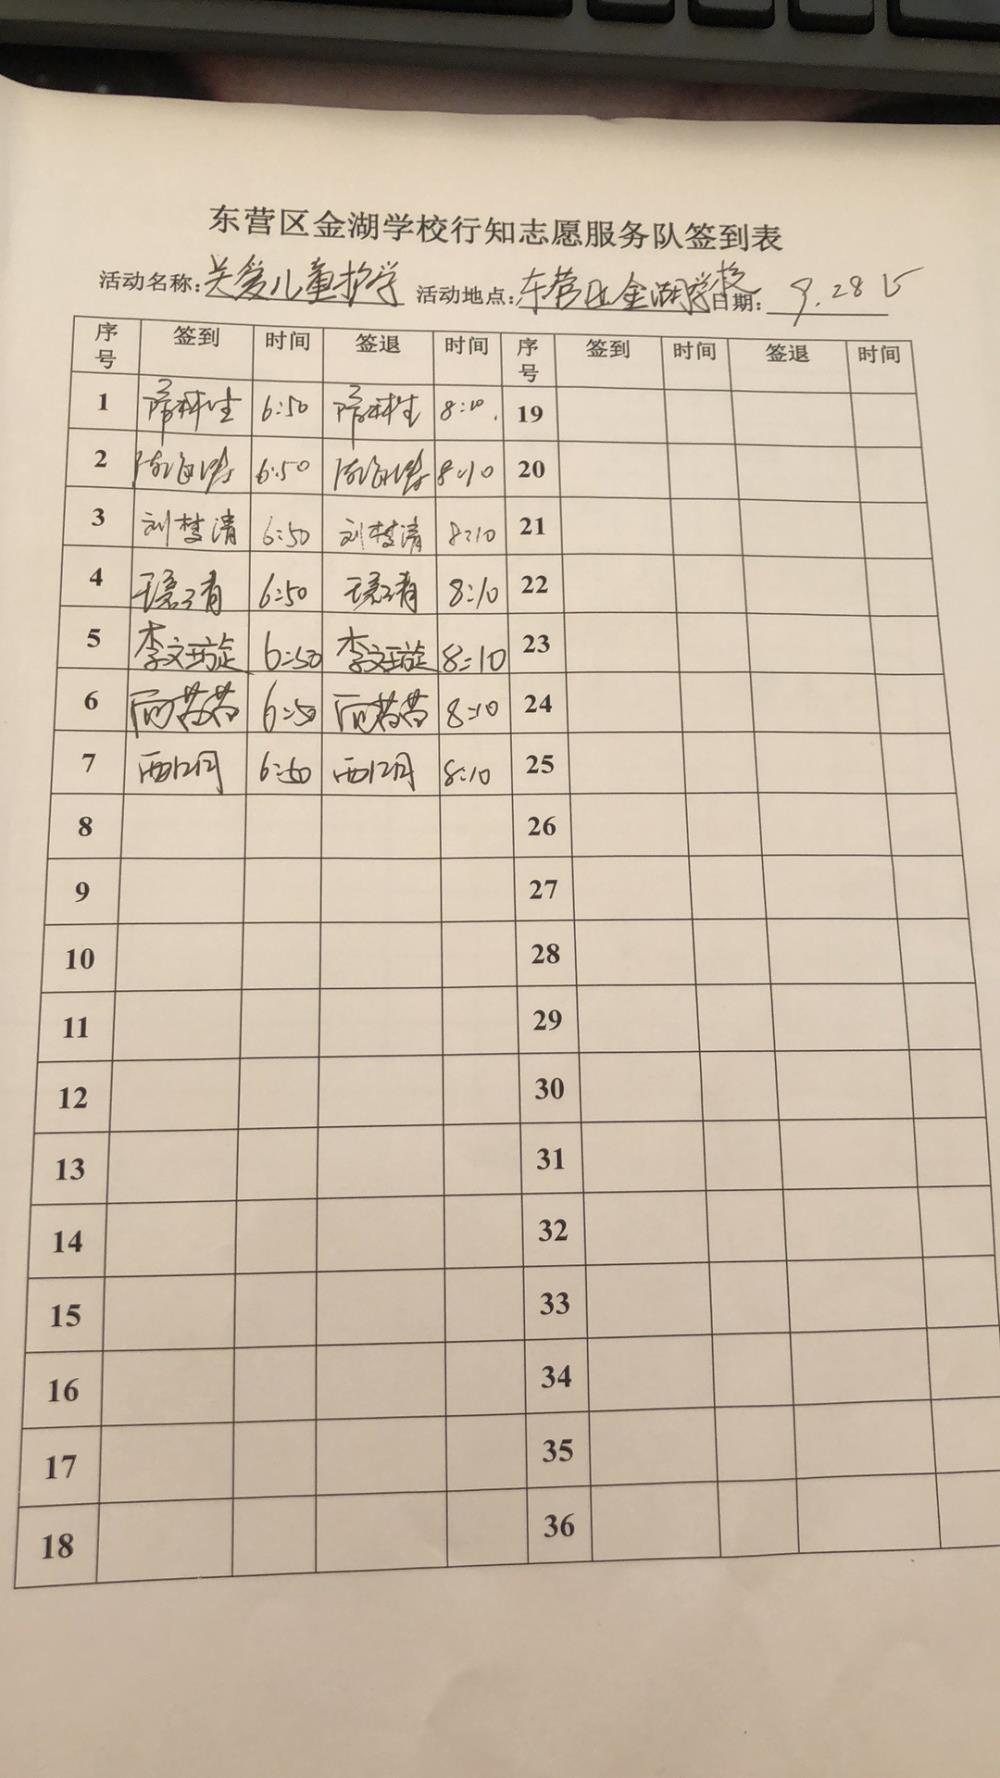 东营区金湖学校行知志愿服务队签到表
活动名称:关爱儿童护学 活动地点:东营区金湖学校 日期: 9.28
序号 签到 时间 签退 时间 序号 签到 时间 签退 时间
1 6:50 8:10. 19
2 6:50 8:10 20
3 刘梦清 6:50 刘梦清 8:10 21
4 6:50 8:10 22
5 李文璇 6:50 李文璇 8:10 23
6 6:50 8:10 24
7 6:50 8:10 25
8 26
9 27
10 28
11 29
12 30
13 31
14 32
15 33
16 34
17 35
18 36